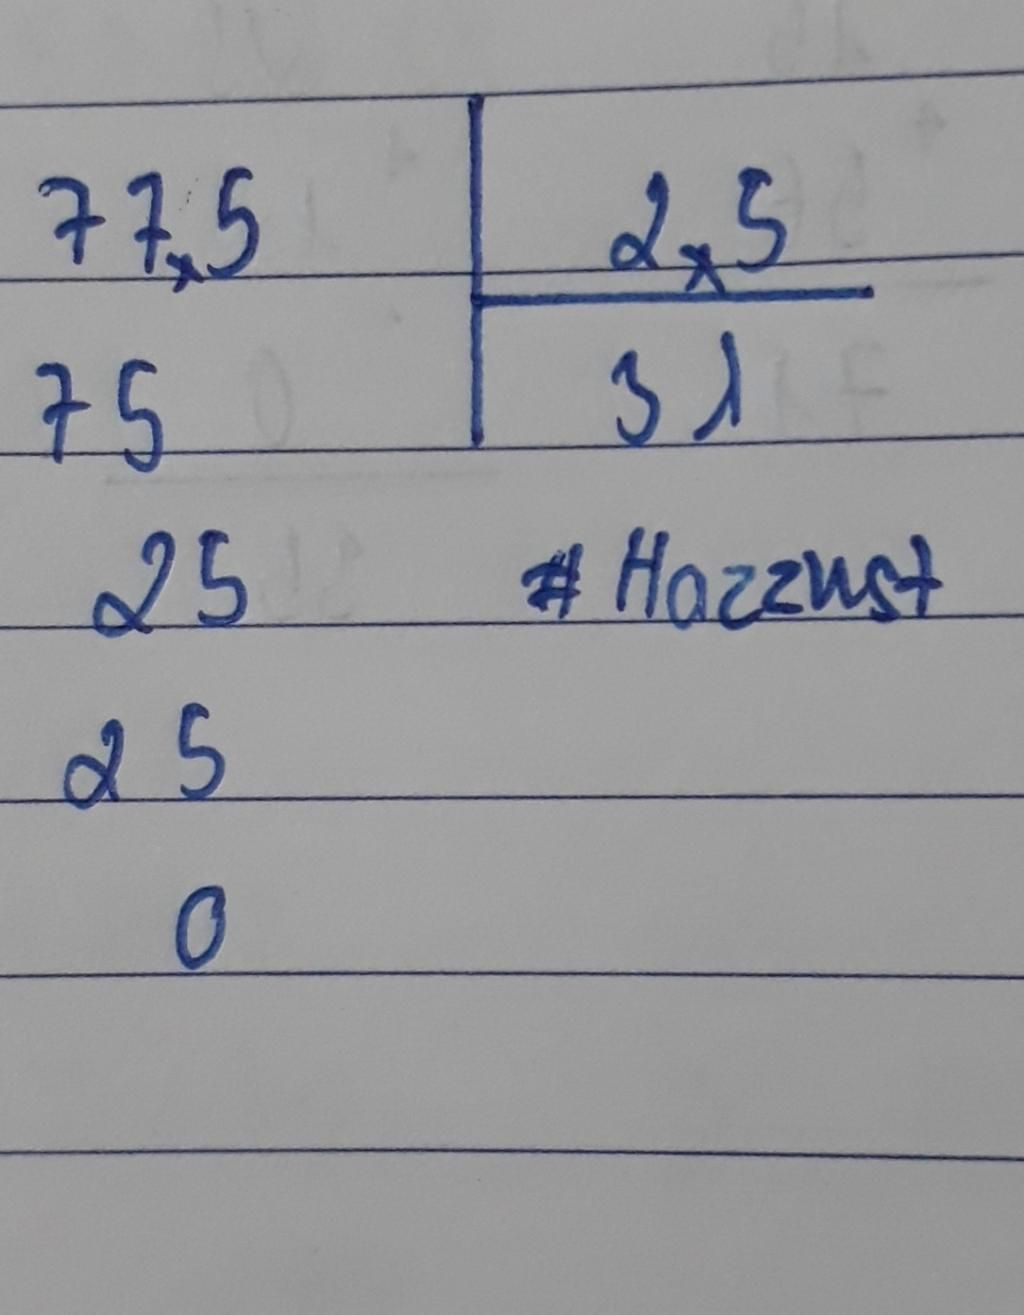 77,5 2,5
75 31
25 #Hazzust
25
0